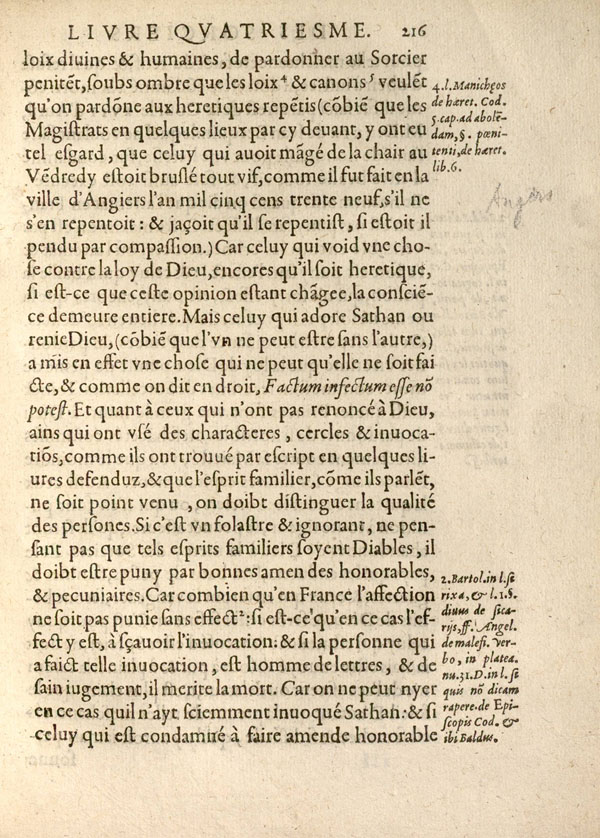 LIVRE QVATRIESME. 216
loix diuines & humaines, de pardonner au Sorcier
penitẽt, ſoubs ombre que les loix⁴ & canons⁵ veulẽt
qu'on pardõne aux heretiques repẽtis (cõbiẽ que les
Magiſtrats en quelques lieux par cy deuant, y ont eu
tel eſgard, que celuy qui auoit mãgé de la chair au
Vẽdredy eſtoit bruſlé tout vif, comme il fut fait en la
ville d'Angiers l'an mil cinq cens trente neuf, s'il ne
s'en repentoit : & jaçoit qu'il ſe repentiſt, ſi eſtoit il
pendu par compaſſion.) Car celuy qui void vne cho-
ſe contre la loy de Dieu, encores qu'il ſoit heretique,
ſi eſt-ce que ceſte opinion eſtant chãgee, la conſciẽ-
ce demeure entiere. Mais celuy qui adore Sathan ou
renie Dieu, (cõbiẽ que l'vn ne peut eſtre ſans l'autre,)
a mis en effet vne choſe qui ne peut qu'elle ne ſoit fai
cte, & comme on dit en droit, Factum infectum eſſe nõ
poteſt. Et quant à ceux qui n'ont pas renoncé à Dieu,
ains qui ont vſé des characteres, cercles & inuoca-
tiõs, comme ils ont trouué par eſcript en quelques li-
ures defenduz, & que l'eſprit familier, cõme ils parlẽt,
ne ſoit point venu, on doibt diſtinguer la qualité
des perſones. Si c'eſt vn folaſtre & ignorant, ne pen-
ſant pas que tels eſprits familiers ſoyent Diables, il
doibt eſtre puny par bonnes amendes honorables,
& pecuniaires. Car combien qu'en France l'affection
ne ſoit pas punie ſans effect²: ſi eſt-ce qu'en ce cas l'ef-
fect y eſt, à ſçauoir l'inuocation: & ſi la perſonne qui
a faict telle inuocation, eſt homme de lettres, & de
ſain iugement, il merite la mort. Car on ne peut nyer
en ce cas quil n'ayt ſciemment inuoqué Sathan: & ſi
celuy qui eſt condamné à faire amende honorable
4. l. Manichęos
de hæret. Cod.
5. cap. ad abolẽ-
dam, §. pœni-
tenti, de hæret.
lib. 6.
Angers
2. Bartol. in l. ſi
rixa, & l. 1. §.
diuus de ſica-
rijs, ff. Angel.
de malefi. ver-
bo, in platea.
nu. 31. D. in l. ſi
quis nõ dicam
rapere. de Epi-
ſcopis Cod. &
ibi Baldus.